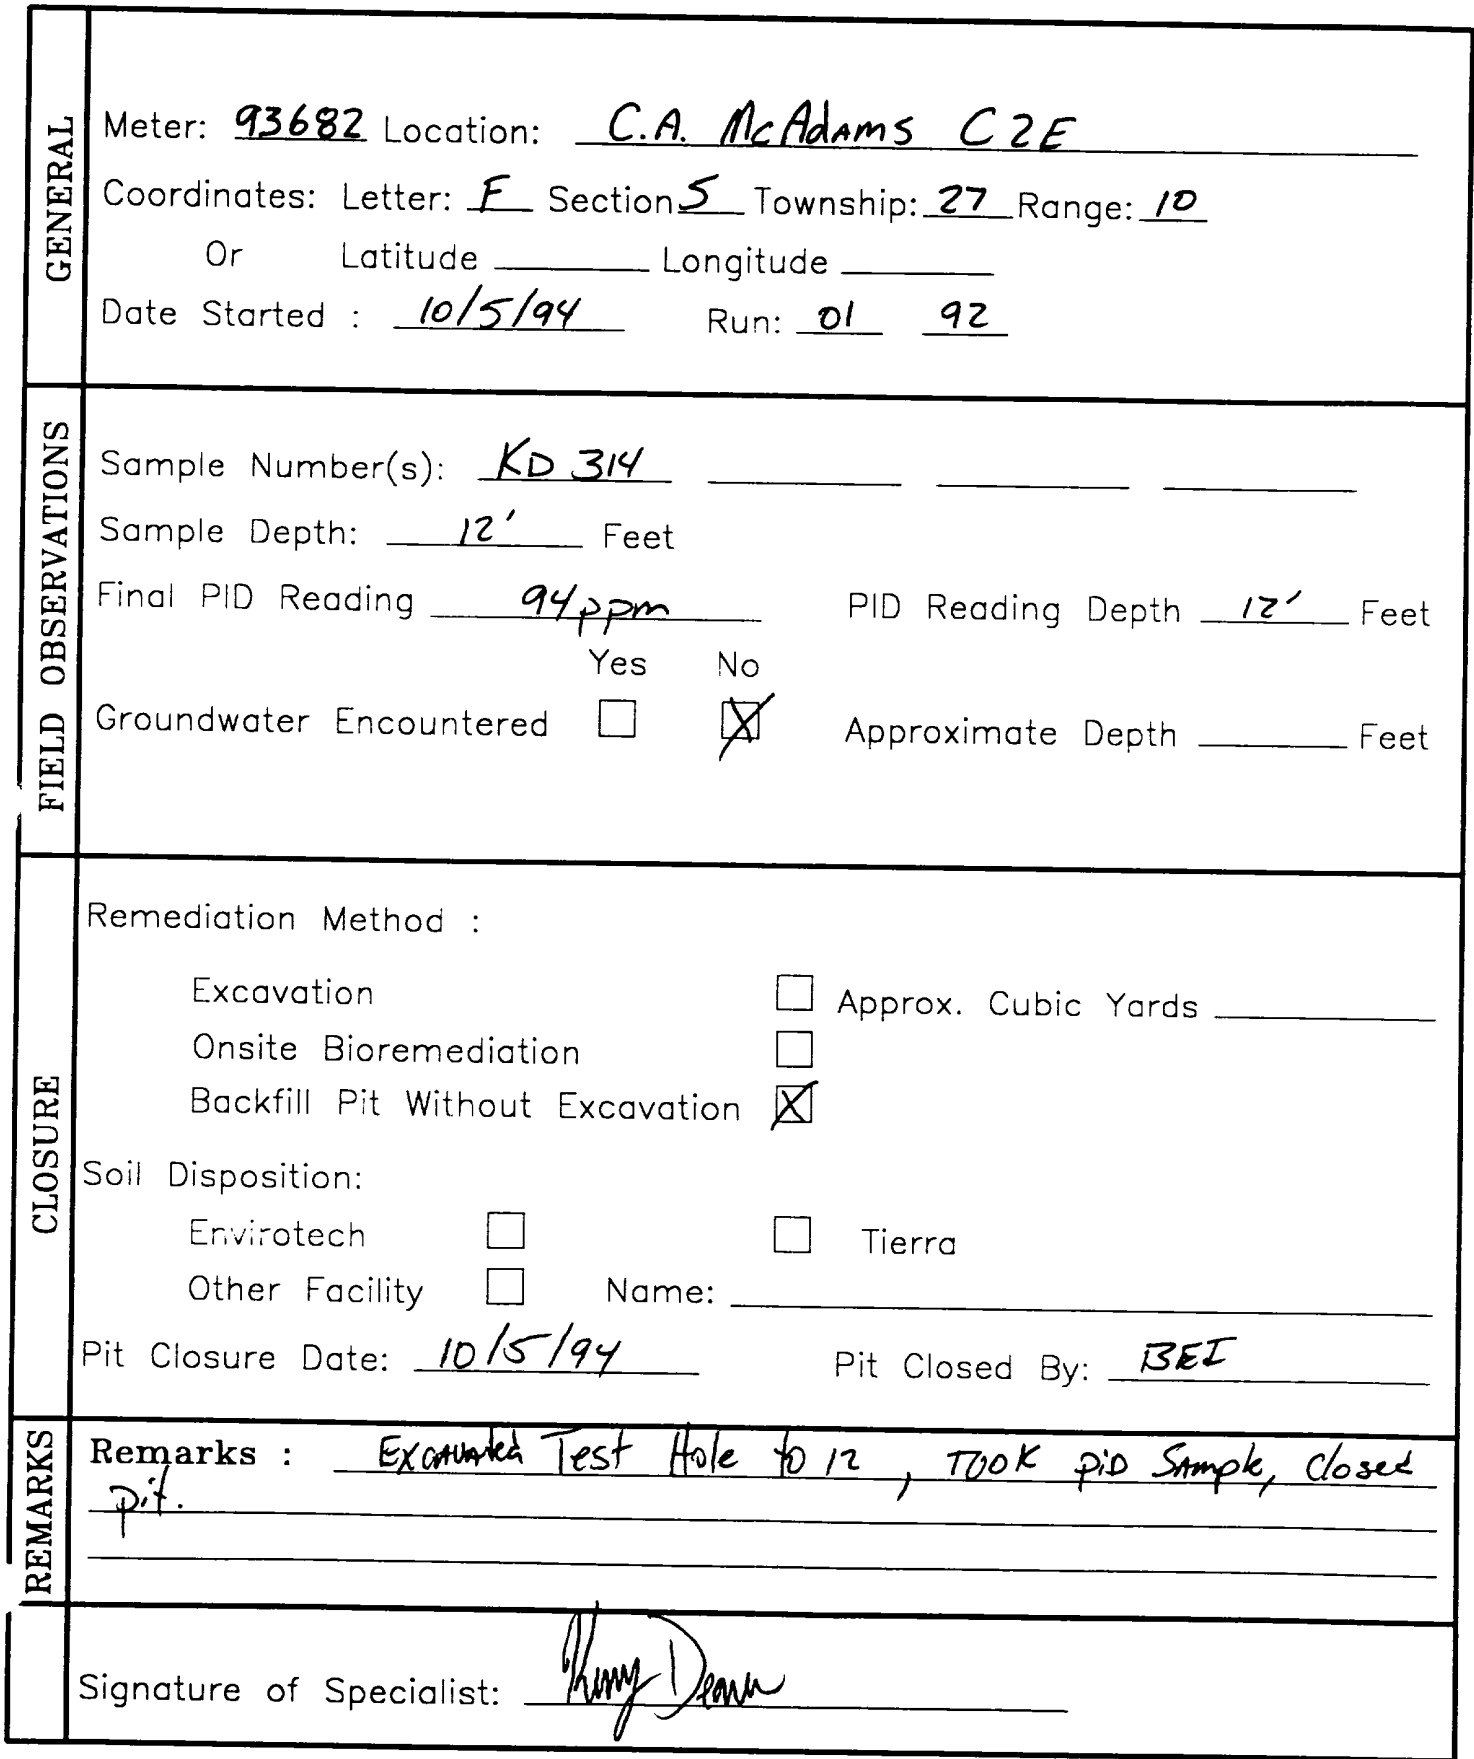 GENERAL
Meter: 93682 Location: C.A. McAdams C 2E
Coordinates: Letter: F Section 5 Township: 27 Range: 10
Or Latitude Longitude
Date Started : 10/5/94 Run: 01 92
FIELD OBSERVATIONS
Sample Number(s): KD 314
Sample Depth: 12' Feet
Final PID Reading 94ppm PID Reading Depth 12' Feet
Yes No
Groundwater Encountered Approximate Depth Feet
CLOSURE
Remediation Method :
Excavation Approx. Cubic Yards
Onsite Bioremediation
Backfill Pit Without Excavation
Soil Disposition:
Envirotech Tierra
Other Facility Name:
Pit Closure Date: 10/5/94 Pit Closed By: BEI
REMARKS
Remarks : Excavated Test Hole to 12, TOOK PiD Sample, Closed
pit.
Signature of Specialist: